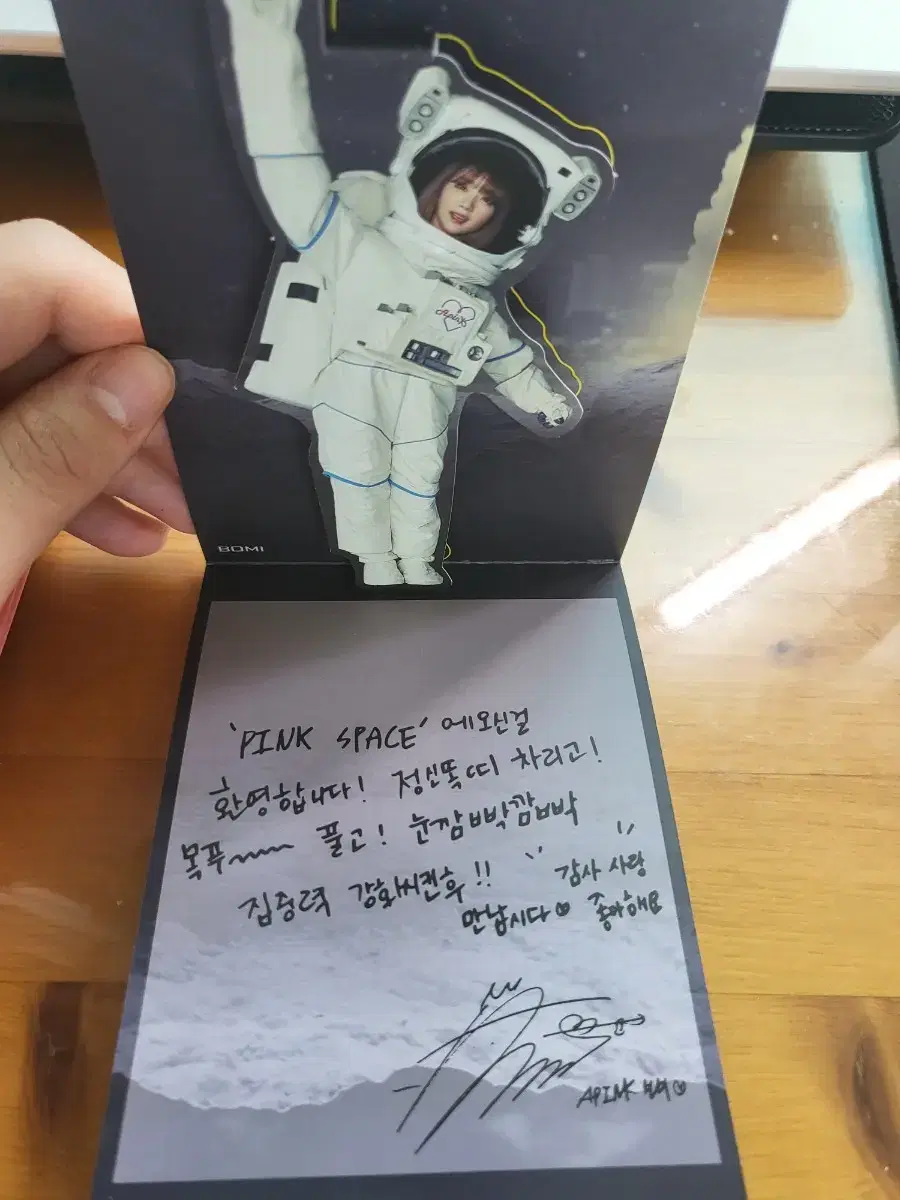 Apink
BOMI
'PINK SPACE' 에오신걸
환영합니다! 정신똑띠 차리고!
목푸~~~ 풀고! 눈깜빡깜빡
집중력 강화씨켠후!!
만납시다♡
감사 사랑
좋아해요
APINK 보미♡